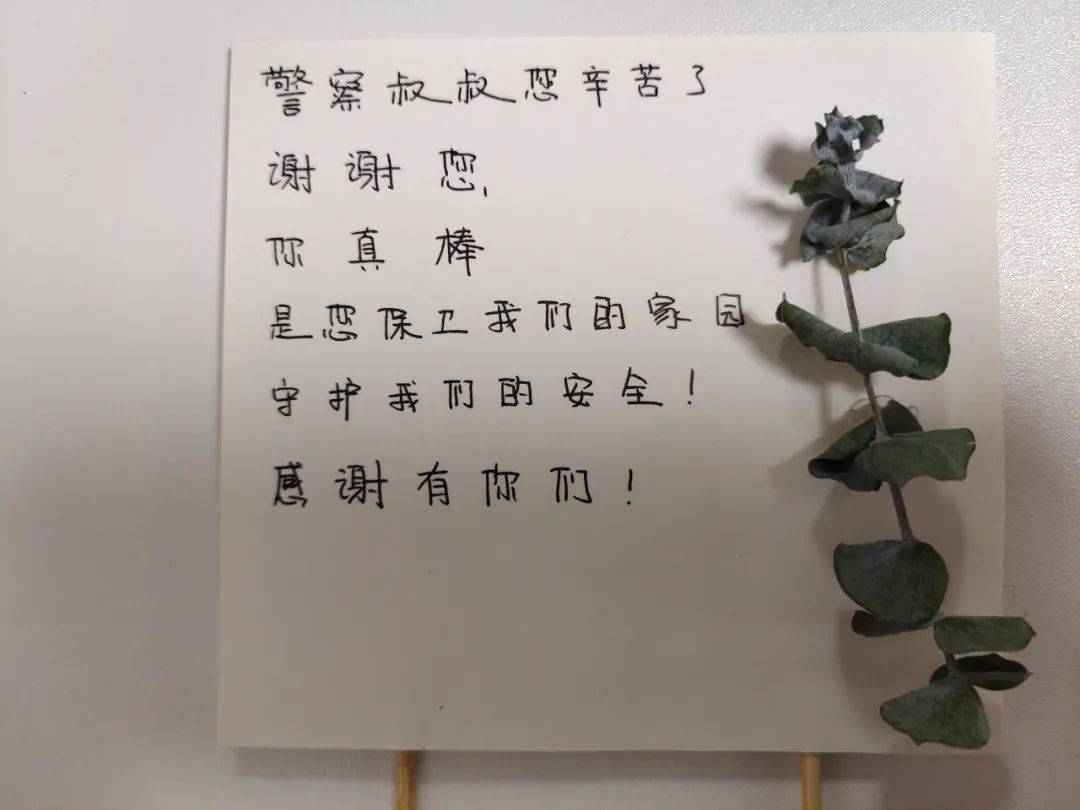 警察叔叔您辛苦了
谢谢您,
你真棒
是您保卫我们的家园
守护我们的安全!
感谢有你们!